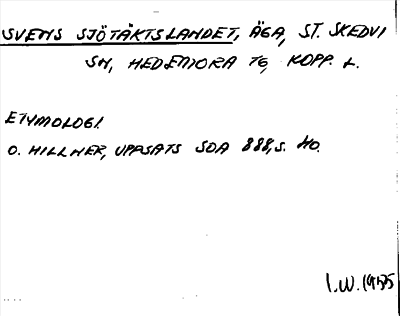 SVENS SJÖTÄKTSLANDET, ÄGA, ST. SKEDVI
SN, HEDEMORA TG, KOPP. L.
ETYMOLOGI.
O. HILLNER, UPPSATS SOA 888, S. 40.
I.W. 1975